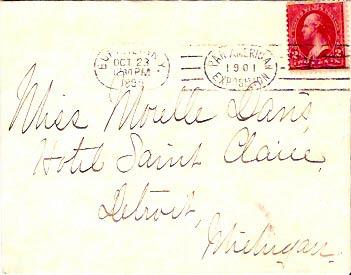 BUFFALO, N.Y.
OCT 23
PM
189
PAN-AMERICAN
1901
EXPOSITION
2 2
Miss Moulle Davis,
Hotel Saint Claire,
Detroit,
Michigan.